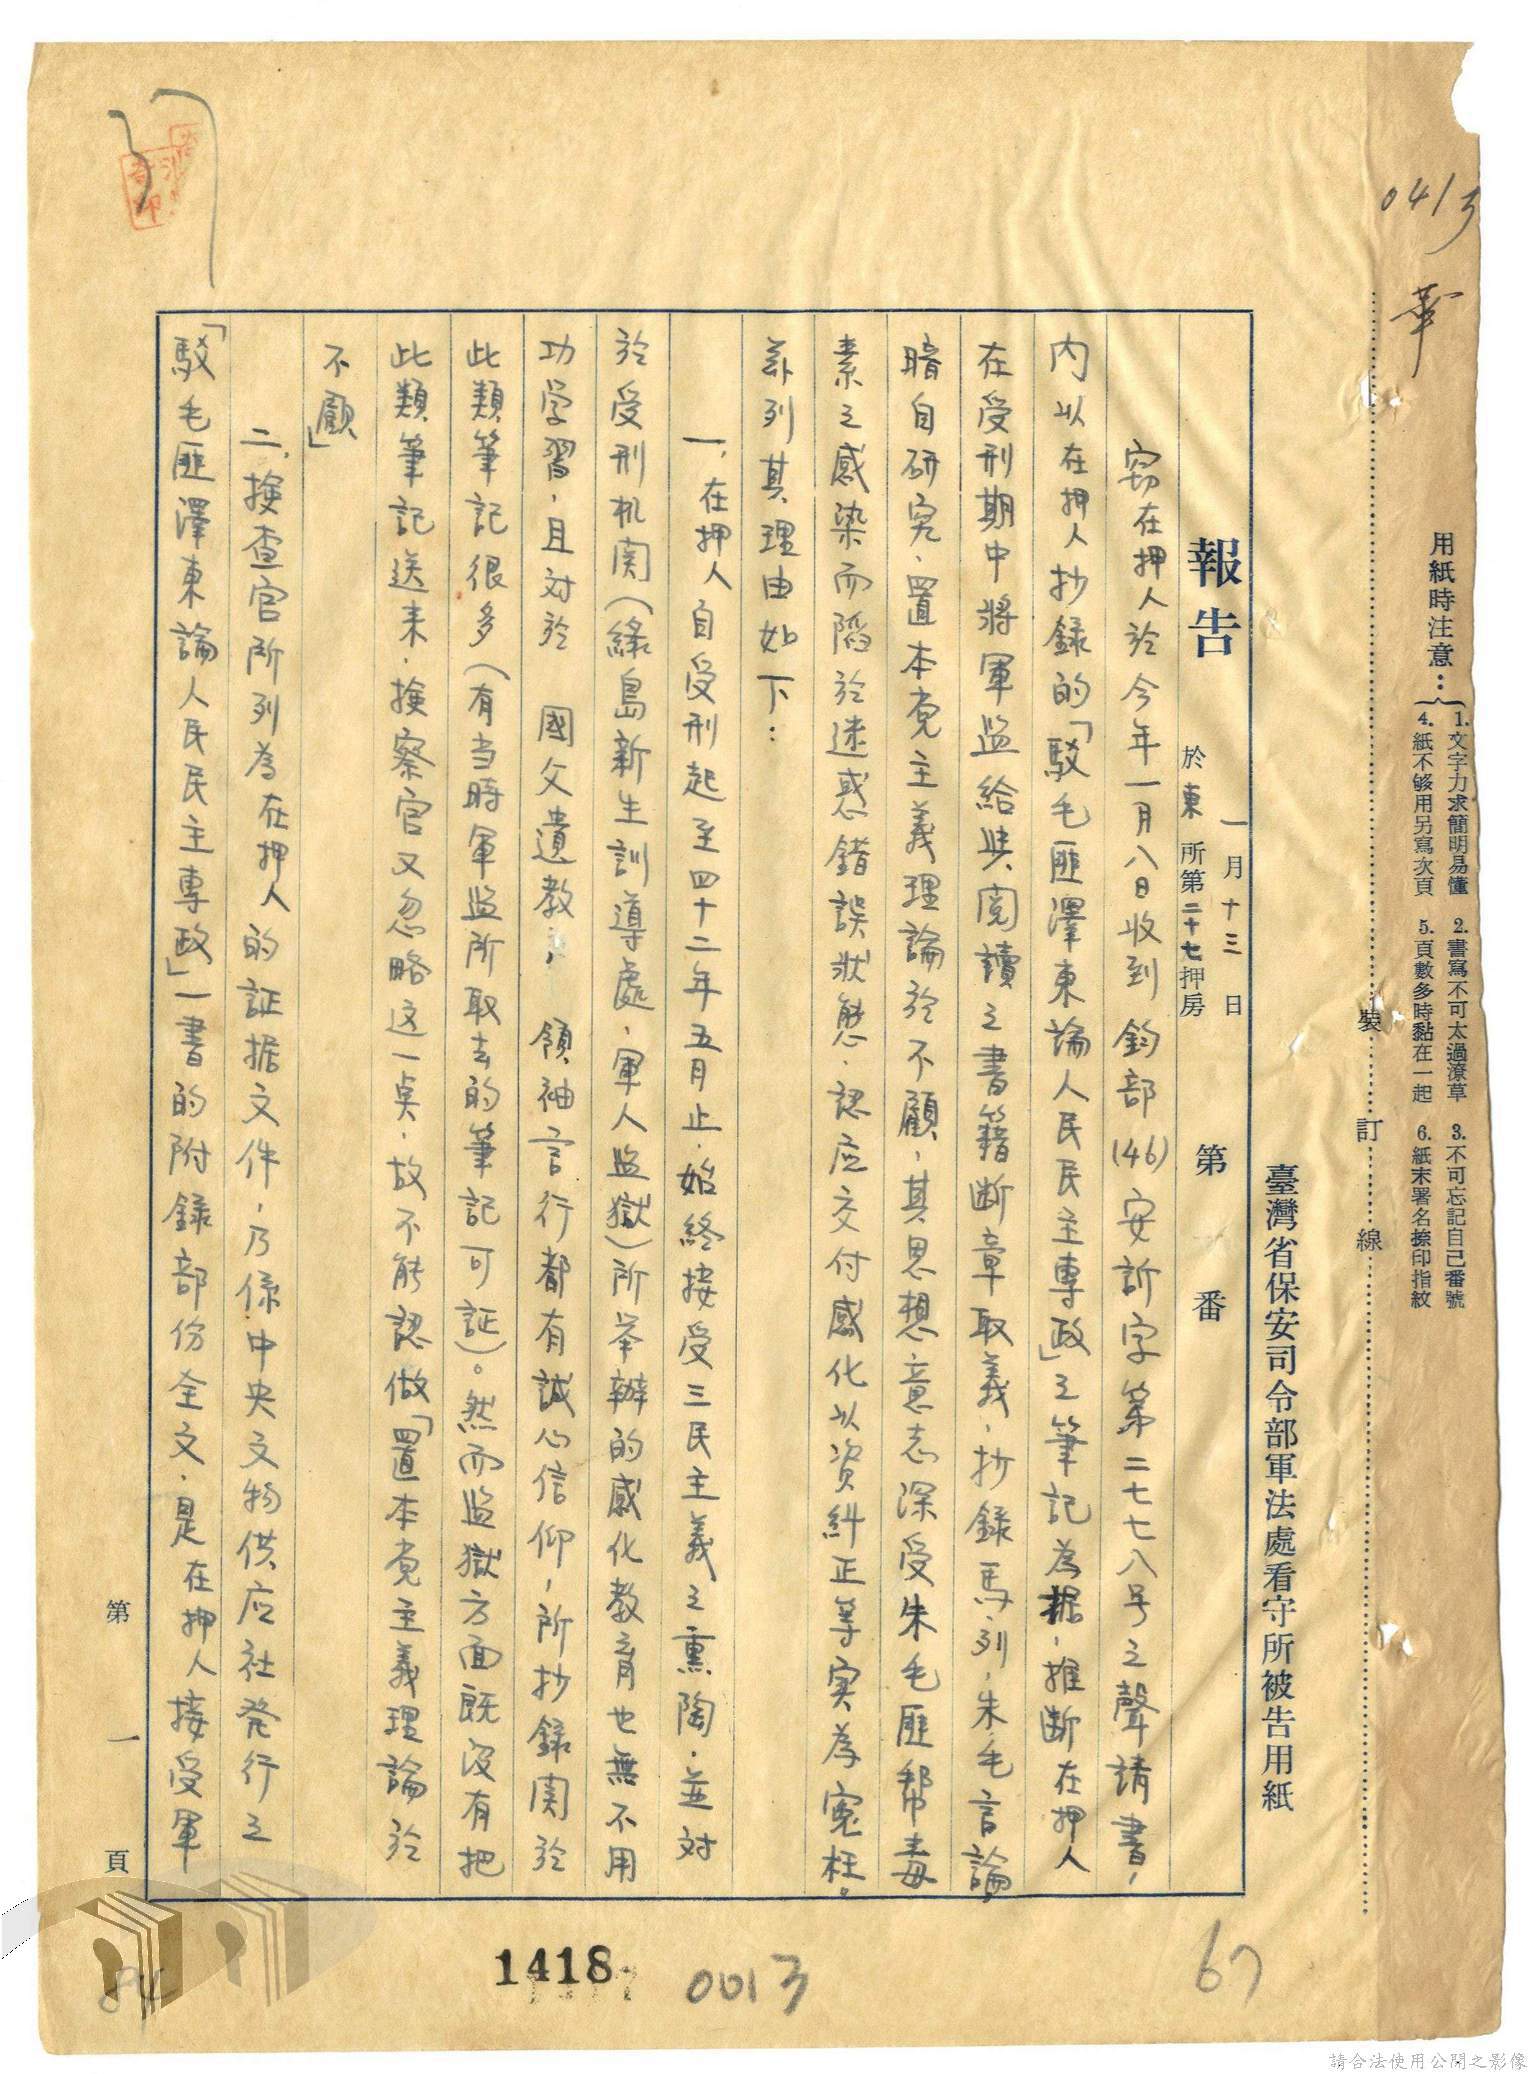 0413
華
用紙時注意：
1.文字力求簡明易懂 2.書寫不可太過潦草 3.不可忘記自己番號
4.紙不够用另寫次頁 5.頁數多時黏在一起 6.紙末署名捺印指紋
裝訂線
臺灣省保安司令部軍法處看守所被告用紙
報告
一月十三日
於東所第二十七押房
第 番
竊在押人於今年一月八日收到 鈞部(46)安訴字第二七七八号之聲請書，
內以在押人抄錄的「駁毛匪澤東論人民民主專政」之筆記為据，推断在押人
在受刑期中將軍监給與閱讀之書籍断章取義，抄錄馬，列，朱，毛言論，
暗自研究，置本党主義理論於不顧，其思想意志深受朱毛匪幫毒
素之感染而陷於迷惑錯誤狀態，認应交付感化以資糾正等实為寃枉。
茲列其理由如下：
一，在押人自受刑起至四十二年五月止，始終接受三民主義之熏陶，並对
於受刑机関(綠島新生訓導處，軍人监獄)所举辦的感化教育也無不用
功学習，且对於 國父遺教， 領袖言行都有誠心信仰，所抄錄関於
此類筆記很多(有当時軍监所取去的筆記可証)。然而监獄方面既没有把
此類筆記送来，檢察官又忽略这一点，故不能認做「置本党主義理論於
不顧」
二，檢查官所列為在押人的証据文件，乃係中央文物供应社発行之
「駁毛匪澤東論人民民主專政」一書的附錄部份全文，是在押人接受軍
第 一 頁
1418
0013
67
84
請合法使用公開之影像